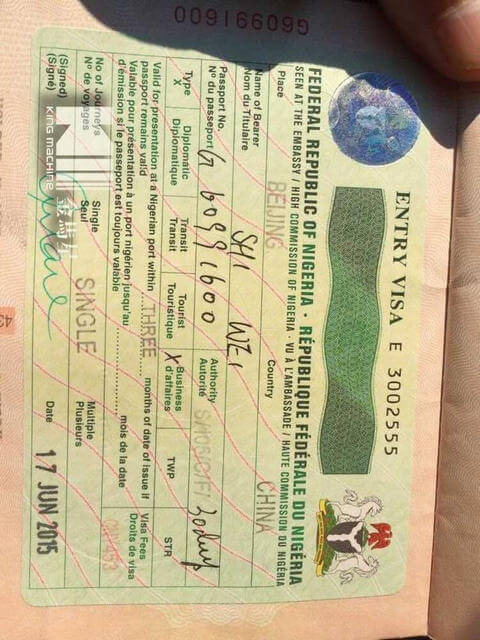 G60991600
ENTRY VISA E 3002555
FEDERAL REPUBLIC OF NIGERIA · RÉPUBLIQUE FÉDÉRALE DU NIGÉRIA
SEEN AT THE EMBASSY / HIGH COMMISSION OF NIGERIA · VU À L'AMBASSADE / HAUTE COMMISSION DU NIGÉRIA
Place BEIJING Country CHINA
Name of Bearer
Nom du Titulaire SHI WEI
Passport No. Authority
N° du passeport G 60991600 Autorité 30days
Type Diplomatic Transit Tourist Business TWP STR
X Diplomatique Transit Touristique X d'affaires
Valid for presentation at a Nigerian port within THREE months of date of issue if Visa Fees
passport remains valid Droits de visa
Valable pour présentation à un port nigérien jusqu'au mois de la date
d'émission si le passeport est toujours valable
No of Journeys Single SINGLE Multiple
N° de voyages Seul Plusieurs
(Signed) Date 17 JUN 2015
(Signé)
KING machine
43